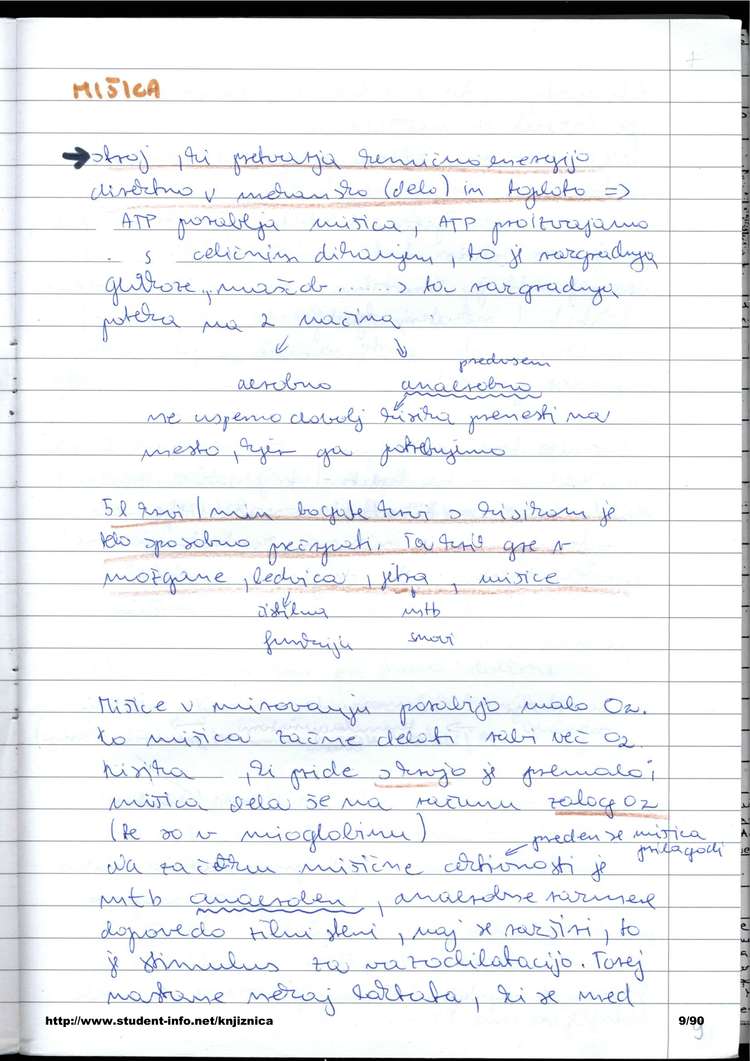 MIŠICA
→ stroj, ki pretvarja kemično energijo
direktno v mehansko (delo) in toploto =>
ATP porablja mišica, ATP proizvajamo
s celičnim dihanjem, to je razgradnja
glukoze, maščob ......> ta razgradnja
poteka na 2 načina
predvsem
aerobno anaerobno
ne uspemo dovolj kisika prenesti na
mesto, kjer ga potrebujemo
5l krvi / min bogate krvi s kisikom je
telo sposobno prečrpati. Ta kri gre v
možgane, ledvica, jetra, mišice
čistilna mtb
funkcija snovi
Mišice v mirovanju porabijo malo O2.
Ko mišica začne delati rabi več O2.
Kisika, ki pride s krvjo je premalo;
mišica dela še na računu zalog O2
(te so v mioglobinu)
preden se mišica
prilagodi
Na začetku mišične aktivnosti je
mtb anaeroben, anaerobne razmere
dopovedo žilni steni, naj se razširi, to
je stimulus za vazodilatacijo. Torej
nastane nekaj laktata, ki se med
http://www.student-info.net/knjiznica
9/90
9